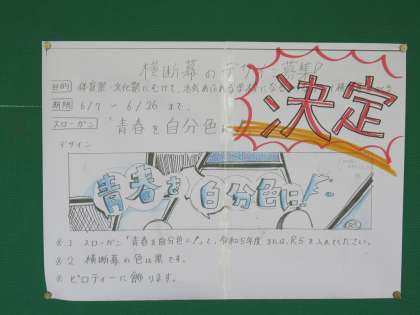 横断幕のデザイン募集!
決定
目的 体育祭・文化祭にむけて、活気あふれる学校になる
期限 6/7 ～ 6/26 まで。
スローガン 「青春を自分色に
デザイン
青春を自分色に!
※1 スローガン「青春を自分色に!」と、令和5年度 または、R5 を入れてください。
※2 横断幕の色は黒です。
※ ピロティーに飾ります。